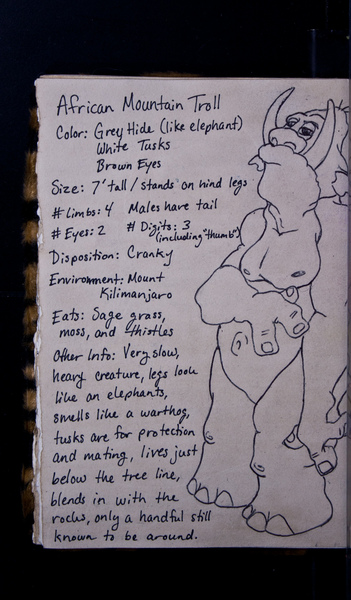 African Mountain Troll
Color: Grey Hide (like elephant)
White Tusks
Brown Eyes
Size: 7' tall / stands on hind legs
# Limbs: 4 Males have tail
# Eyes: 2 # Digits: 3
(including "thumb")
Disposition: Cranky
Environment: Mount
Kilimanjaro
Eats: Sage grass,
moss, and thistles
Other Info: Very slow,
heavy creature, legs look
like an elephants,
smells like a warthog,
tusks are for protection
and mating, lives just
below the tree line,
blends in with the
rocks, only a handful still
known to be around.